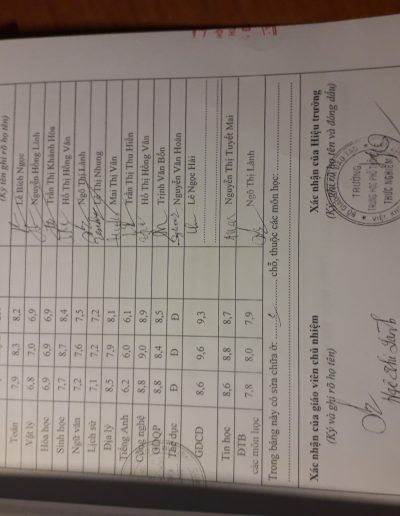 (Ký tên ghi rõ họ tên)
Toán 7,9 8,3 8,2 Lê Bích Ngọc
Vật lý 6,8 7,0 6,9 Nguyễn Hồng Linh
Hóa học 6,9 6,9 6,9 Trần Thị Khánh Hòa
Sinh học 7,7 8,7 8,4 Hồ Thị Hồng Vân
Ngữ văn 7,2 7,6 7,5 Ngô Thị Lành
Lịch sử 7,1 7,2 7,2 Thị Nhung
Địa lý 8,5 7,9 8,1 Mai Thị Vân
Tiếng Anh 6,2 6,0 6,1 Trần Thị Thu Hiền
Công nghệ 8,8 9,0 8,9 Hồ Thị Hồng Vân
GDQP 8,8 8,4 8,5 Trịnh Văn Bốn
Thể dục Đ Đ Đ Nguyễn Văn Hoàn
GDCD 8,6 9,6 9,3 Lê Ngọc Hải
Tin học 8,6 8,8 8,7 Nguyễn Thị Tuyết Mai
ĐTB các môn học 7,8 8,0 7,9 Ngô Thị Lành
Trong bảng này có sửa chữa ở: chỗ, thuộc các môn học:
Xác nhận của giáo viên chủ nhiệm Xác nhận của Hiệu trưởng
(Ký và ghi rõ họ tên) (Ký, ghi rõ họ tên và đóng dấu)
TRƯỜNG
TRUNG HỌC PHỔ
THỰC NGHIỆM
Ngô Thị Lành